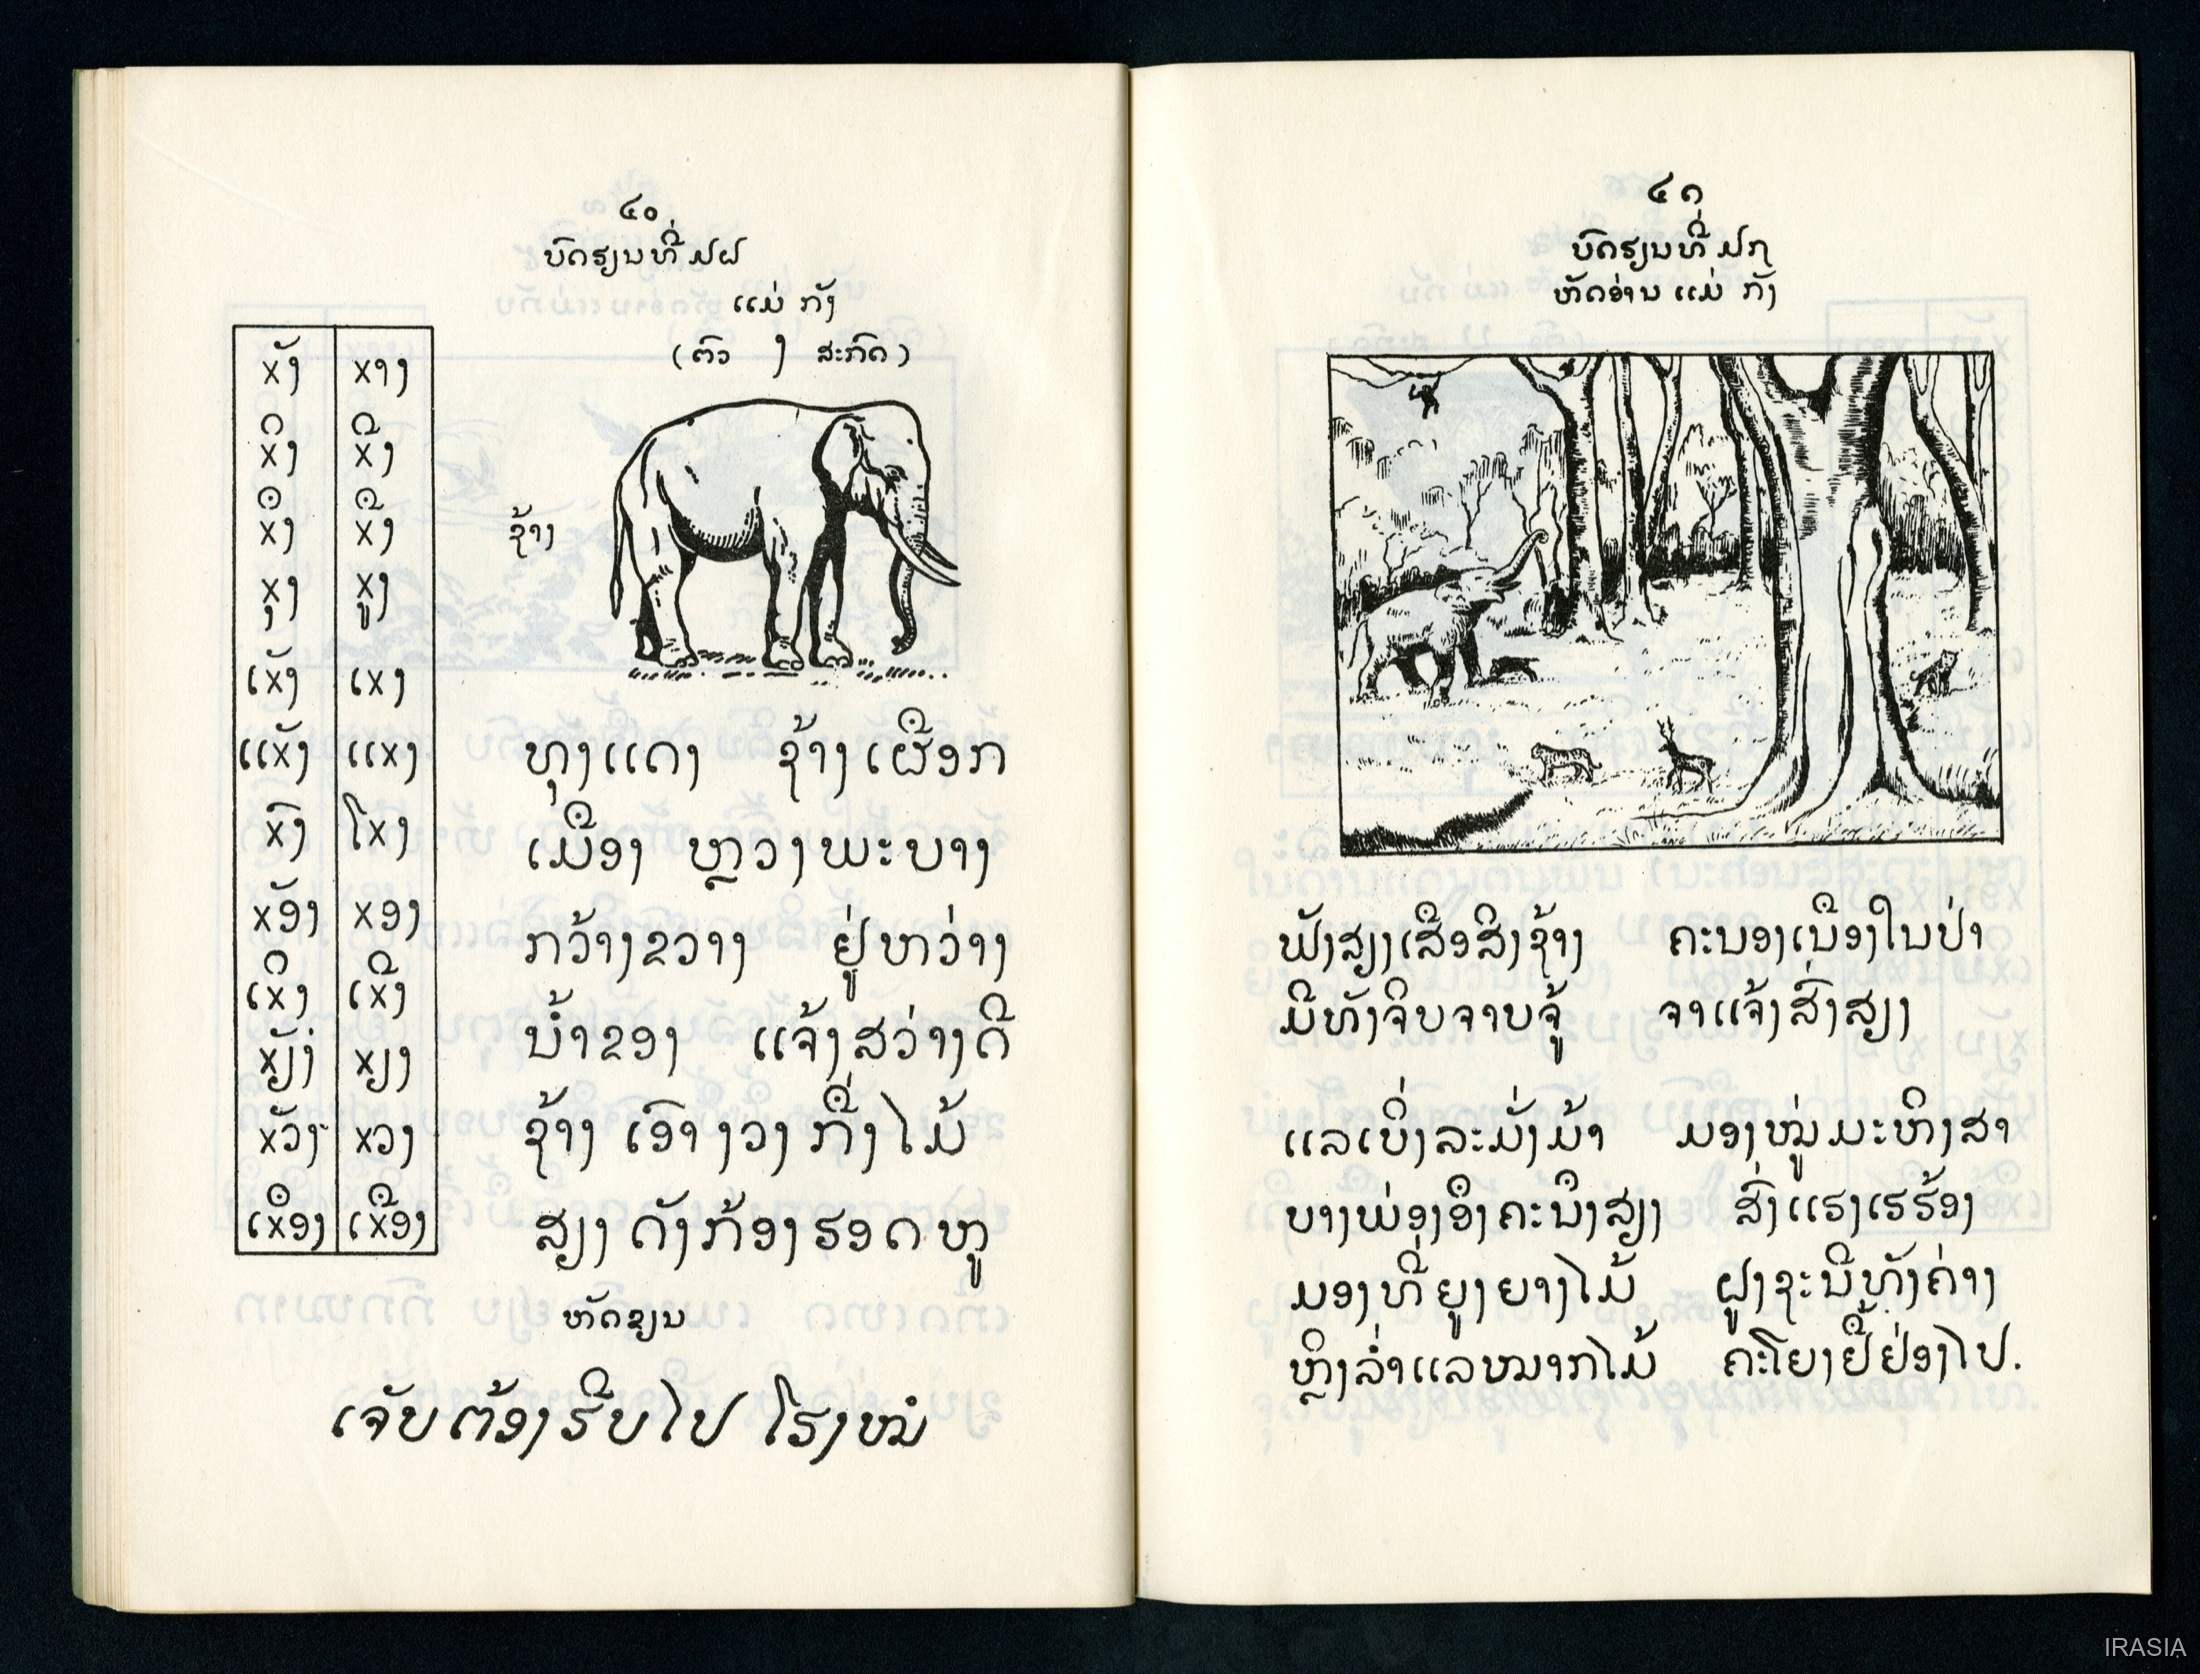 ໔໐
ບົດຮຽນທີ່
ແມ່ ກັງ
(ຕົວ ງ ສະກົດ)
xັງ xາງ
xິງ xີງ
xຶງ xືງ
xຸງ xູງ
ເxັງ ເxງ
ແxັງ ແxງ
xົງ ໂxງ
xັອງ xອງ
ເxິງ ເxີງ
xັຽງ xຽງ
xັວງ xວງ
ເxຶອງ ເxືອງ
ຊ້າງ
ທຸງແດງ ຊ້າງເຜືອກ
ເມືອງ ຫຼວງພະບາງ
ກວ້າງຂວາງ ຢູ່ຫວ່າງ
ນ້ຳຂອງ ແຈ້ງສວ່າງດີ
ຊ້າງ ເອົາງວງ ກີ່ງໄມ້
ສຽງ ດັງກ້ອງຮອດຫູ
ຫັດຂຽນ
ເຈັບຕ້ອງຮີບໄປ ໂຮງໝໍ
໔໑
ບົດຮຽນທີ່
ຫັດອ່ານ ແມ່ ກັງ
ຟັງສຽງເສືອສິງຊ້າງ ຄະນອງເນືອງໃນປ່າ
ມີທັງຈິບຈາບຈູ້ ຈາແຈ້ງສົ່ງສຽງ
ແລເບິ່ງລະມັ່ງມ້າ ມອງໝູ່ມະຫິງສາ
ບາງພ່ອງອຶງຄະນຶງສຽງ ສົ່ງແຮງເຮຮ້ອງ
ມອງທີ່ຍູງຍາງໄມ້ ຝູງຊະນີທັງຄ່າງ
ຫຼິງລ່ຳແລໝາກໄມ້ ຄະໂຍງຢື້ຢ່ອງໄປ.
IRASIA